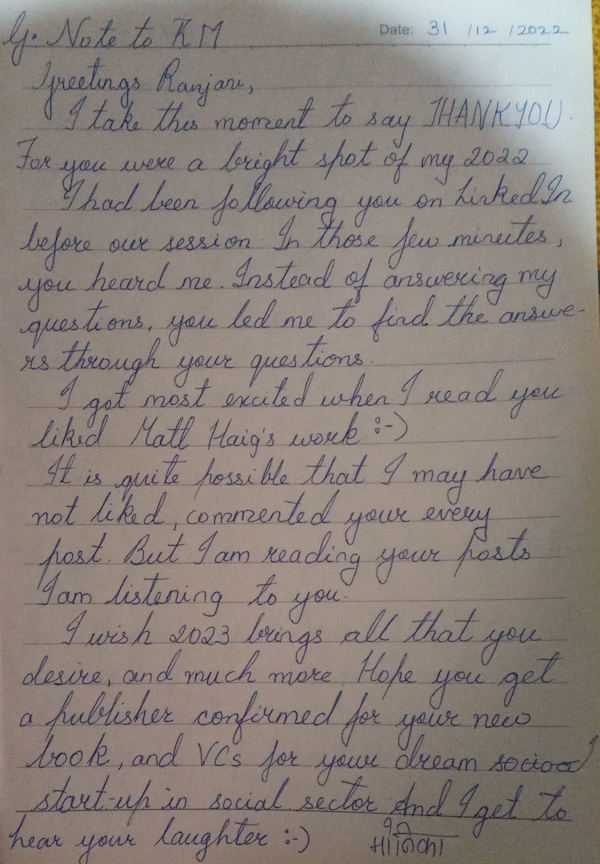 G. Note to KM Date: 31 /12 /2022
Greetings Ranjani,
I take this moment to say THANKYOU.
For you were a bright spot of my 2022
I had been following you on LinkedIn
before our session In those few minutes,
you heard me. Instead of answering my
questions, you led me to find the answe-
rs through your questions.
I got most excited when I read you
liked Matt Haig's work :-)
It is quite possible that I may have
not liked, commented your every
post. But I am reading your posts
I am listening to you.
I wish 2023 brings all that you
desire, and much more. Hope you get
a publisher confirmed for your new
book, and VCs for your dream
start-up in social sector And I get to
hear your laughter :-)